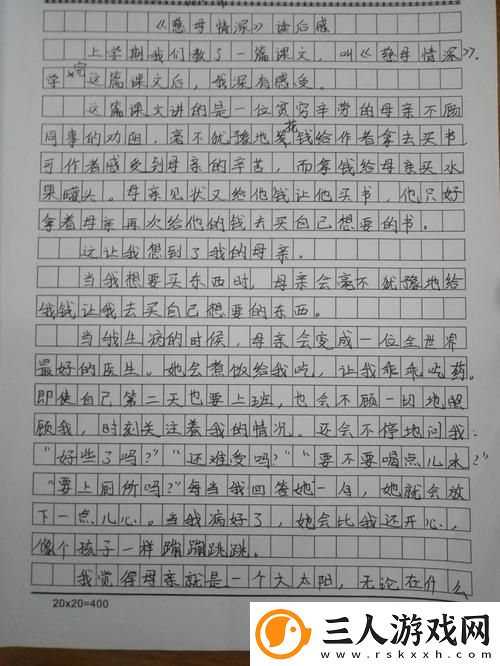 《慈母情深》读后感
上学期我们教了一篇课文，叫《慈母情深》.
学完这篇课文后，我深有感受。
这篇课文讲的是一位贫穷辛劳的母亲不顾
同事的劝阻，毫不犹豫地花钱给作者拿去买书
可作者感受到母亲的辛苦，而拿钱给母亲买水
果罐头。母亲见状又给他钱让他买书，他只好
拿着母亲再次给他的钱去买自己想要的书。
这让我想到了我的母亲。
当我想要买东西时，母亲会毫不犹豫地给
我钱让我去买自己想要的东西。
当我生病的时候，母亲会变成一位全世界
最好的医生。她会煮饭给我吃，让我乖乖吃药。
即使自己第二天也要上班，也会不顾一切地照
顾我，时刻关注着我的情况。还会不停地问我：
“好些了吗？”“还难受吗？”“要不要喝点儿水？”
“要上厕所吗？”每当我回答她一句，她就会放
下一点儿心。当我病好了，她会比我还开心，
像个孩子一样蹦蹦跳跳。
我觉得母亲就是一个大太阳，无论在什么
20x20=400
三人游戏网
www.rskxxh.com